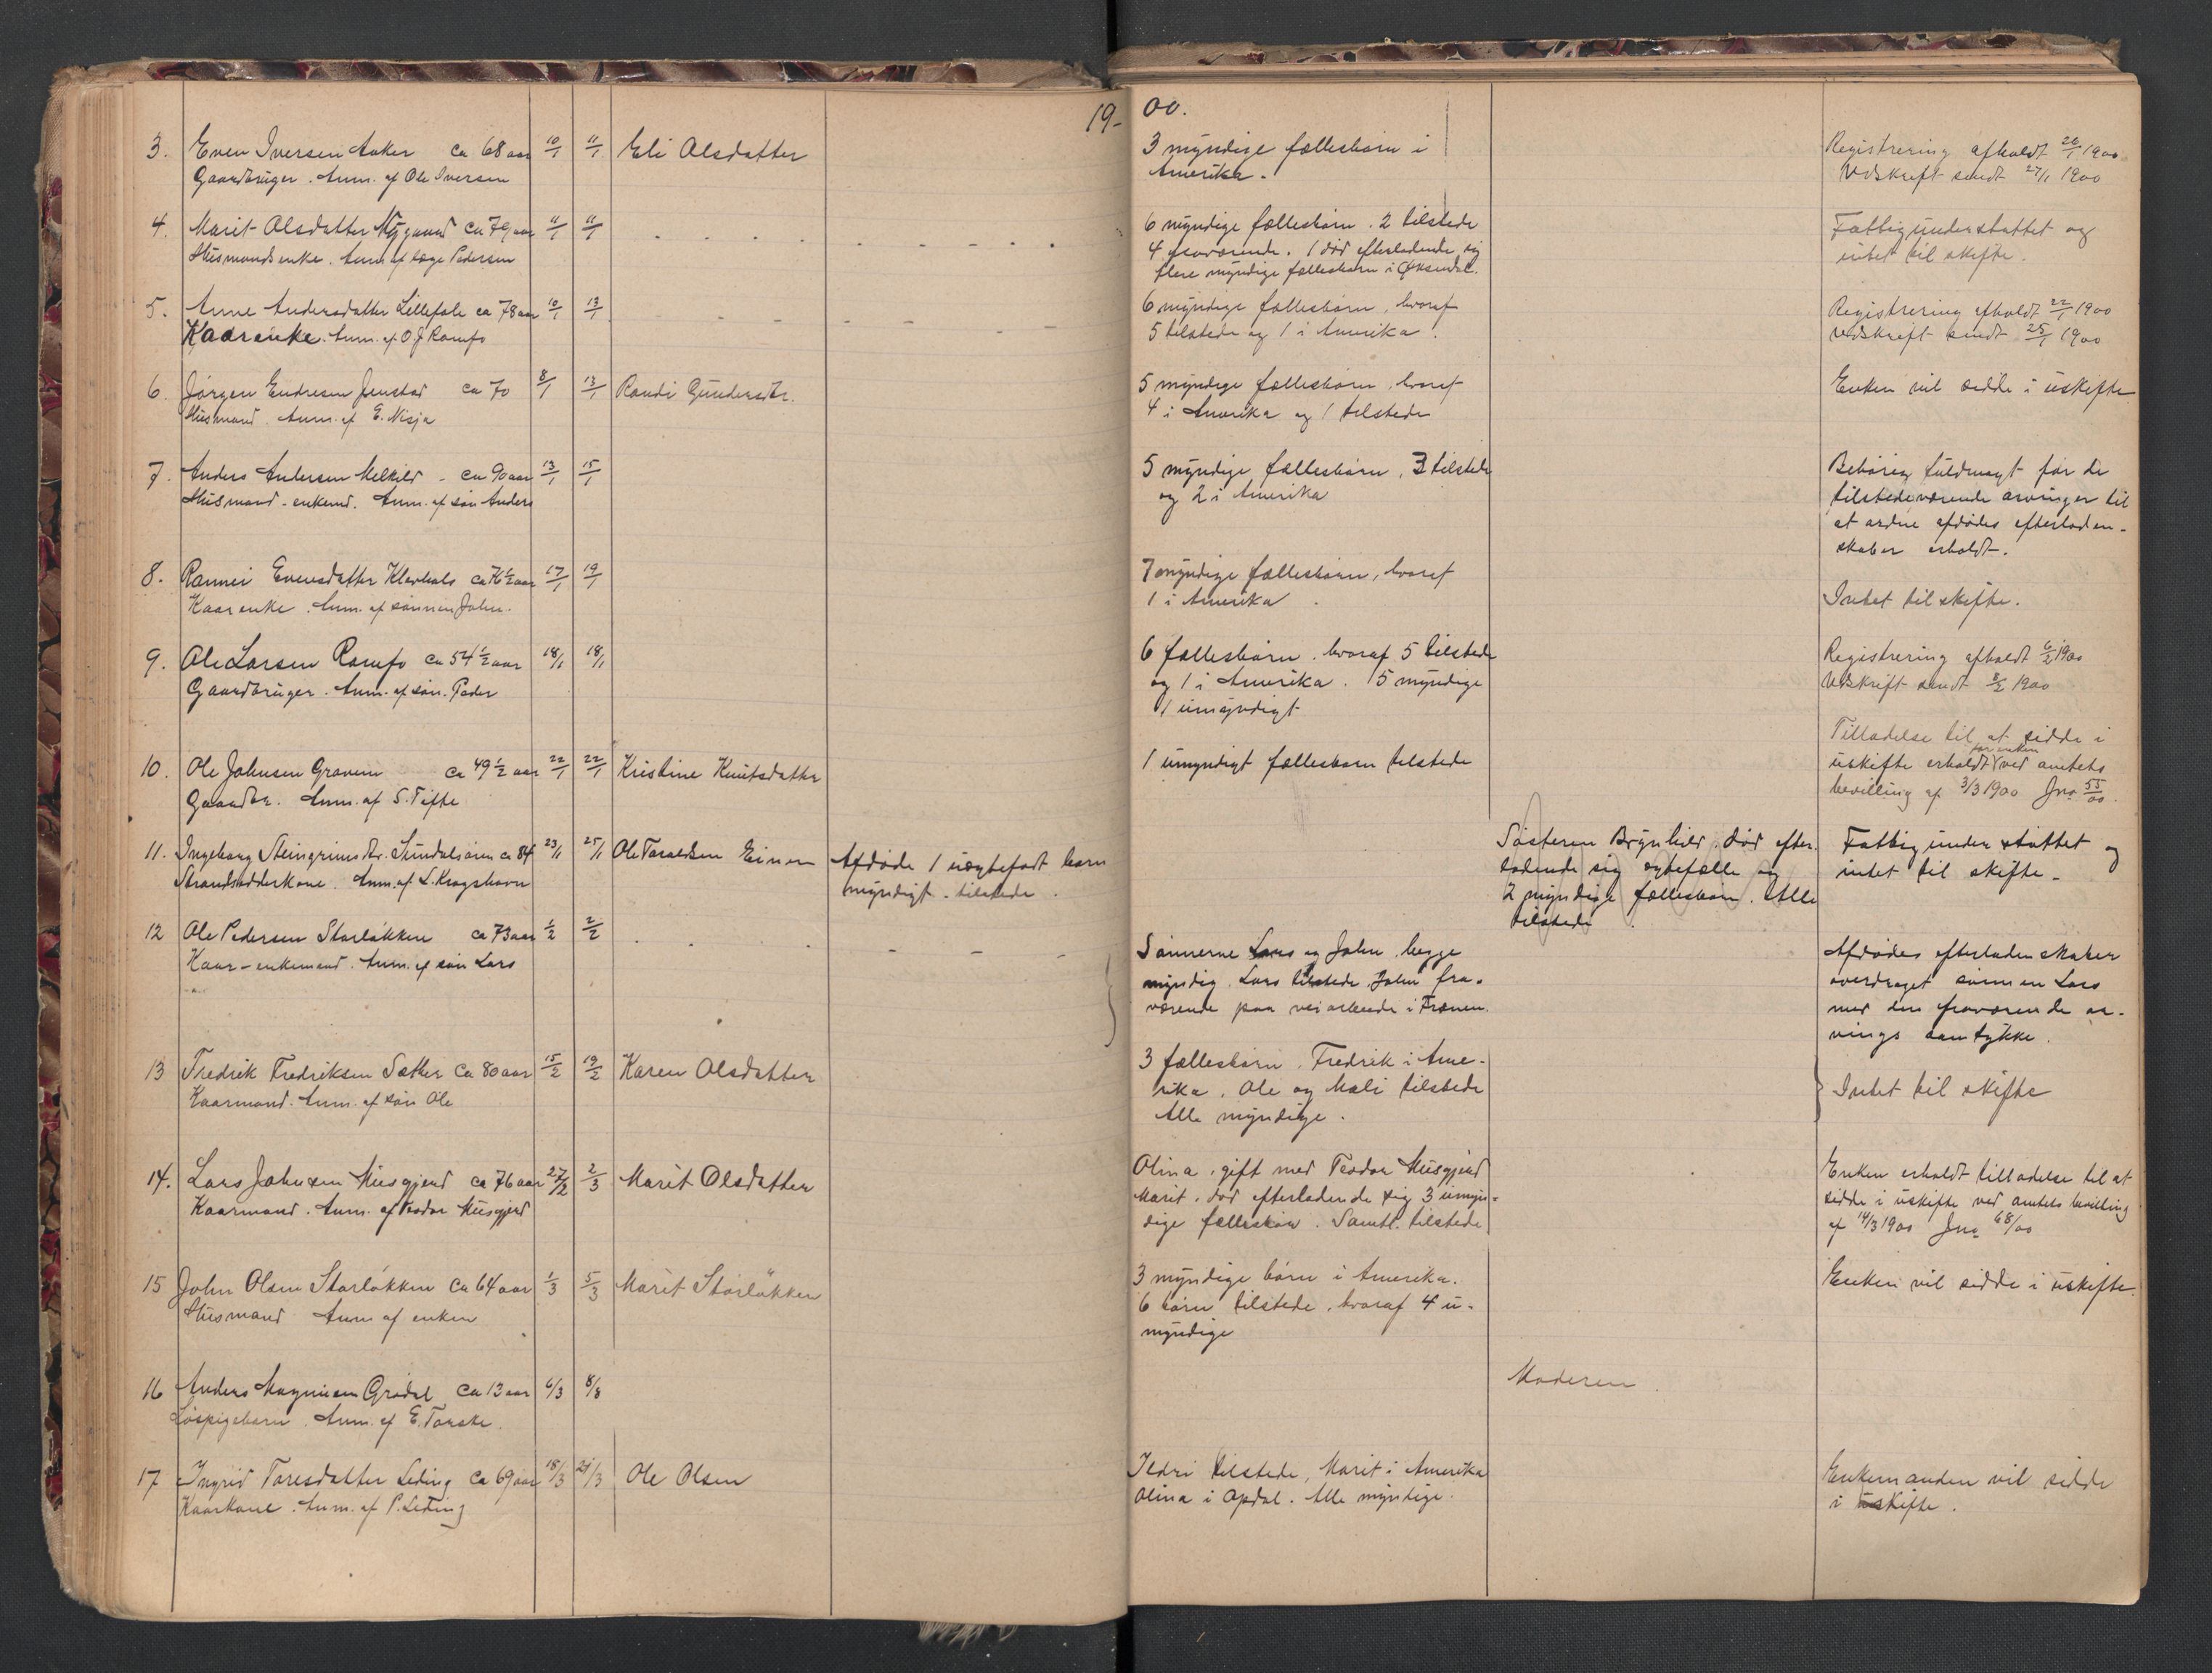 19- 00.
3. Even Iversen Aaker ca 68 aar 10/1 11/1 Eli Olsdatter
Gaardbruger. Anm. af Ole Iversen
3 myndige fællesbørn i
Amerika.
Registrering afholdt 26/1 1900
Udskrift sendt 27/1 1900
4. Marit Olsdatter Nygaard ca 79 aar 11/1 11/1
Husmandsenke. Anm. af Pedersen
6 myndige fællesbørn. 2 tilstede
4 fraværende. 1 død efterladende sig
flere myndige fællesbørn i Øksendal.
Fattigunderstøttet og
intet til skifte.
5. Anne Andersdatter Lillefale ca 78 aar 10/1 13/1
Kaarenke. Anm. af O. J Romfo
6 myndige fællesbørn, hvoraf
5 tilstede og 1 i Amerika.
Registrering afholdt 22/1 1900
Udskrift sendt 25/1 1900
6. Jørgen Endresen Jenstad ca 70 8/1 13/1 Randi Gundersdtr.
Husmand. Anm. af E. Nisja
5 myndige fællesbørn, hvoraf
4 i Amerika og 1 tilstede
Enken vil sidde i uskifte
7. Anders Andersen Melkild - ca 90 aar 13/1 15/1
Husmand - enkemd. Anm. af søn Anders
5 myndige fællesbørn, 3 tilstede
og 2 i Amerika
Behørig fuldmagt for de
tilstedeværende arvinger til
at ordne afdødes efterladen-
skaber erholdt.
8. Rannei Evensdatter Klevhals ca 76 1/2 aar 17/1 19/1
Kaarenke. Anm. af sønnen John.
7 myndige fællesbørn, hvoraf
1 i Amerika
Intet til skifte.
9. Ole Larsen Romfo ca 54 1/2 aar 18/1 18/1
Gaardbruger. Anm. af søn. Peder
6 fællesbørn. hvoraf 5 tilstede
og 1 i Amerika. 5 myndige
1 umyndigt
Registrering afholdt 6/2 1900
Udskrift sendt 8/2 1900
10. Ole Johnsen Gravem ca 49 1/2 aar 22/1 22/1 Kristine Knutsdatter
Gaardbr. Anm. af S. Tifte
1 umyndigt fællesbarn tilstede
Tilladelse til at sidde i
uskifte erholdt for enken ved amtets
bevilling af 3/3 1900 Jno 55/00.
11. Ingeborg Steingrimsdtr. Sundalsøren ca 84 23/1 25/1 Ole Taraldsen Einan Afdøde 1 uægtefødt barn
Strandsidderkone. Anm. af L. Krogshavn myndigt. tilstede.
Søsteren Brynhild. død efter-
ladende sig egtefælle og
2 myndige fællesbørn. Alle
tilstede.
Fattigunderstøttet og
intet til skifte -
12 Ole Pedersen Storløkken ca 73 aar 1/2 2/2
Kaar - enkemand. Anm. af søn Lars
Sønnerne Lars og John. begge
myndig. Lars tilstede. John fra-
værende paa veiarbeide i Frænen.
Afdødes efterladenskaber
overdraget sønnen Lars
med den fraværende ar-
vings samtykke.
13 Fredrik Fredriksen Sæther ca 80 aar 15/2 19/2 Karen Olsdatter
Kaarmand. Anm. af søn Ole
3 fællesbørn. Fredrik i Ame-
rika. Ole og Mali tilstede
Alle myndige.
Intet til skifte
14. Lars Johnsen Musgjerd ca 76 aar 27/2 2/3 Marit Olsdatter
Kaarmand. Anm. af Teodor Musgjerd
Olina. gift med Teodor Musgjerd
Marit. død efterladende sig 3 umyn-
dige fællesbørn. Samtl. tilstede
Enken erholdt tilladelse til at
sidde i uskifte ved amtets bevilling
af 14/3 1900 Jno 68/00
15 John Olsen Storløkken ca 64 aar 1/3 5/3 Marit Storløkken
Husmand Anm af enken
3 myndige børn i Amerika.
6 børn tilstede, hvoraf 4 u-
myndige
Enken vil sidde i uskifte.
16 Anders Magnusen Grødal ca 13 aar 6/3 8/3
Løspigebarn. Anm. af E. Torske.
Moderen.
17 Ingrid Toresdatter Leding ca 69 aar 18/3 21/3 Ole Olsen
Kaarkone. Anm. af P. Leding
Ildri tilstede, Marit i Amerika
Olina i Opdal. Alle myndige.
Enkemanden vil sidde
i uskifte.